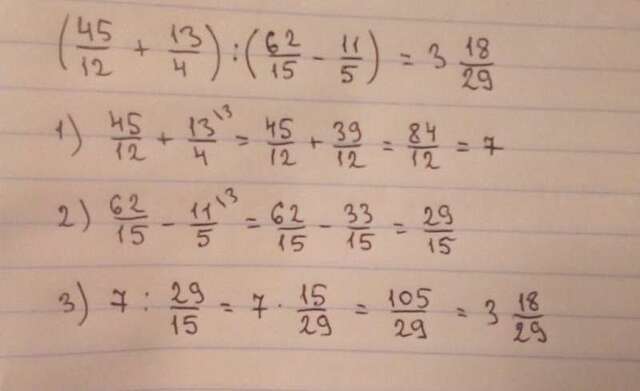 (45/12 + 13/4) : (62/15 - 11/5) = 3 18/29
1) 45/12 + 13\3/4 = 45/12 + 39/12 = 84/12 = 7
2) 62/15 - 11\3/5 = 62/15 - 33/15 = 29/15
3) 7 : 29/15 = 7 · 15/29 = 105/29 = 3 18/29